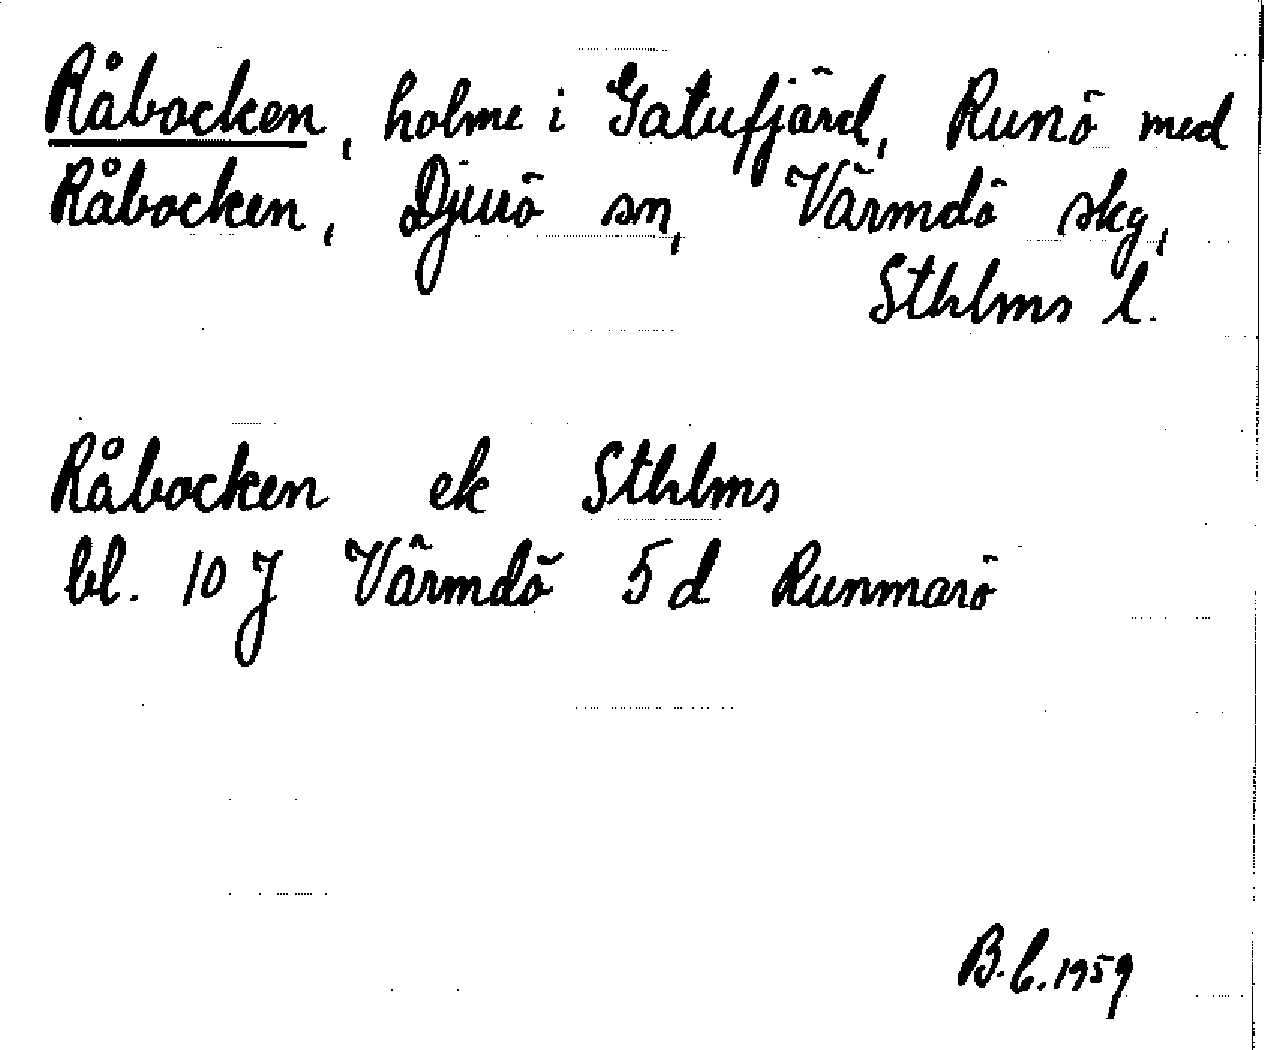 Råbocken, holme i Gatufjärd, Runö med
Råbocken, Djurö sn, Värmdö skg,
Sthlms l.
Råbocken ek Sthlms
bl. 10 J Värmdö 5 d Runmarö
B. C. 1959